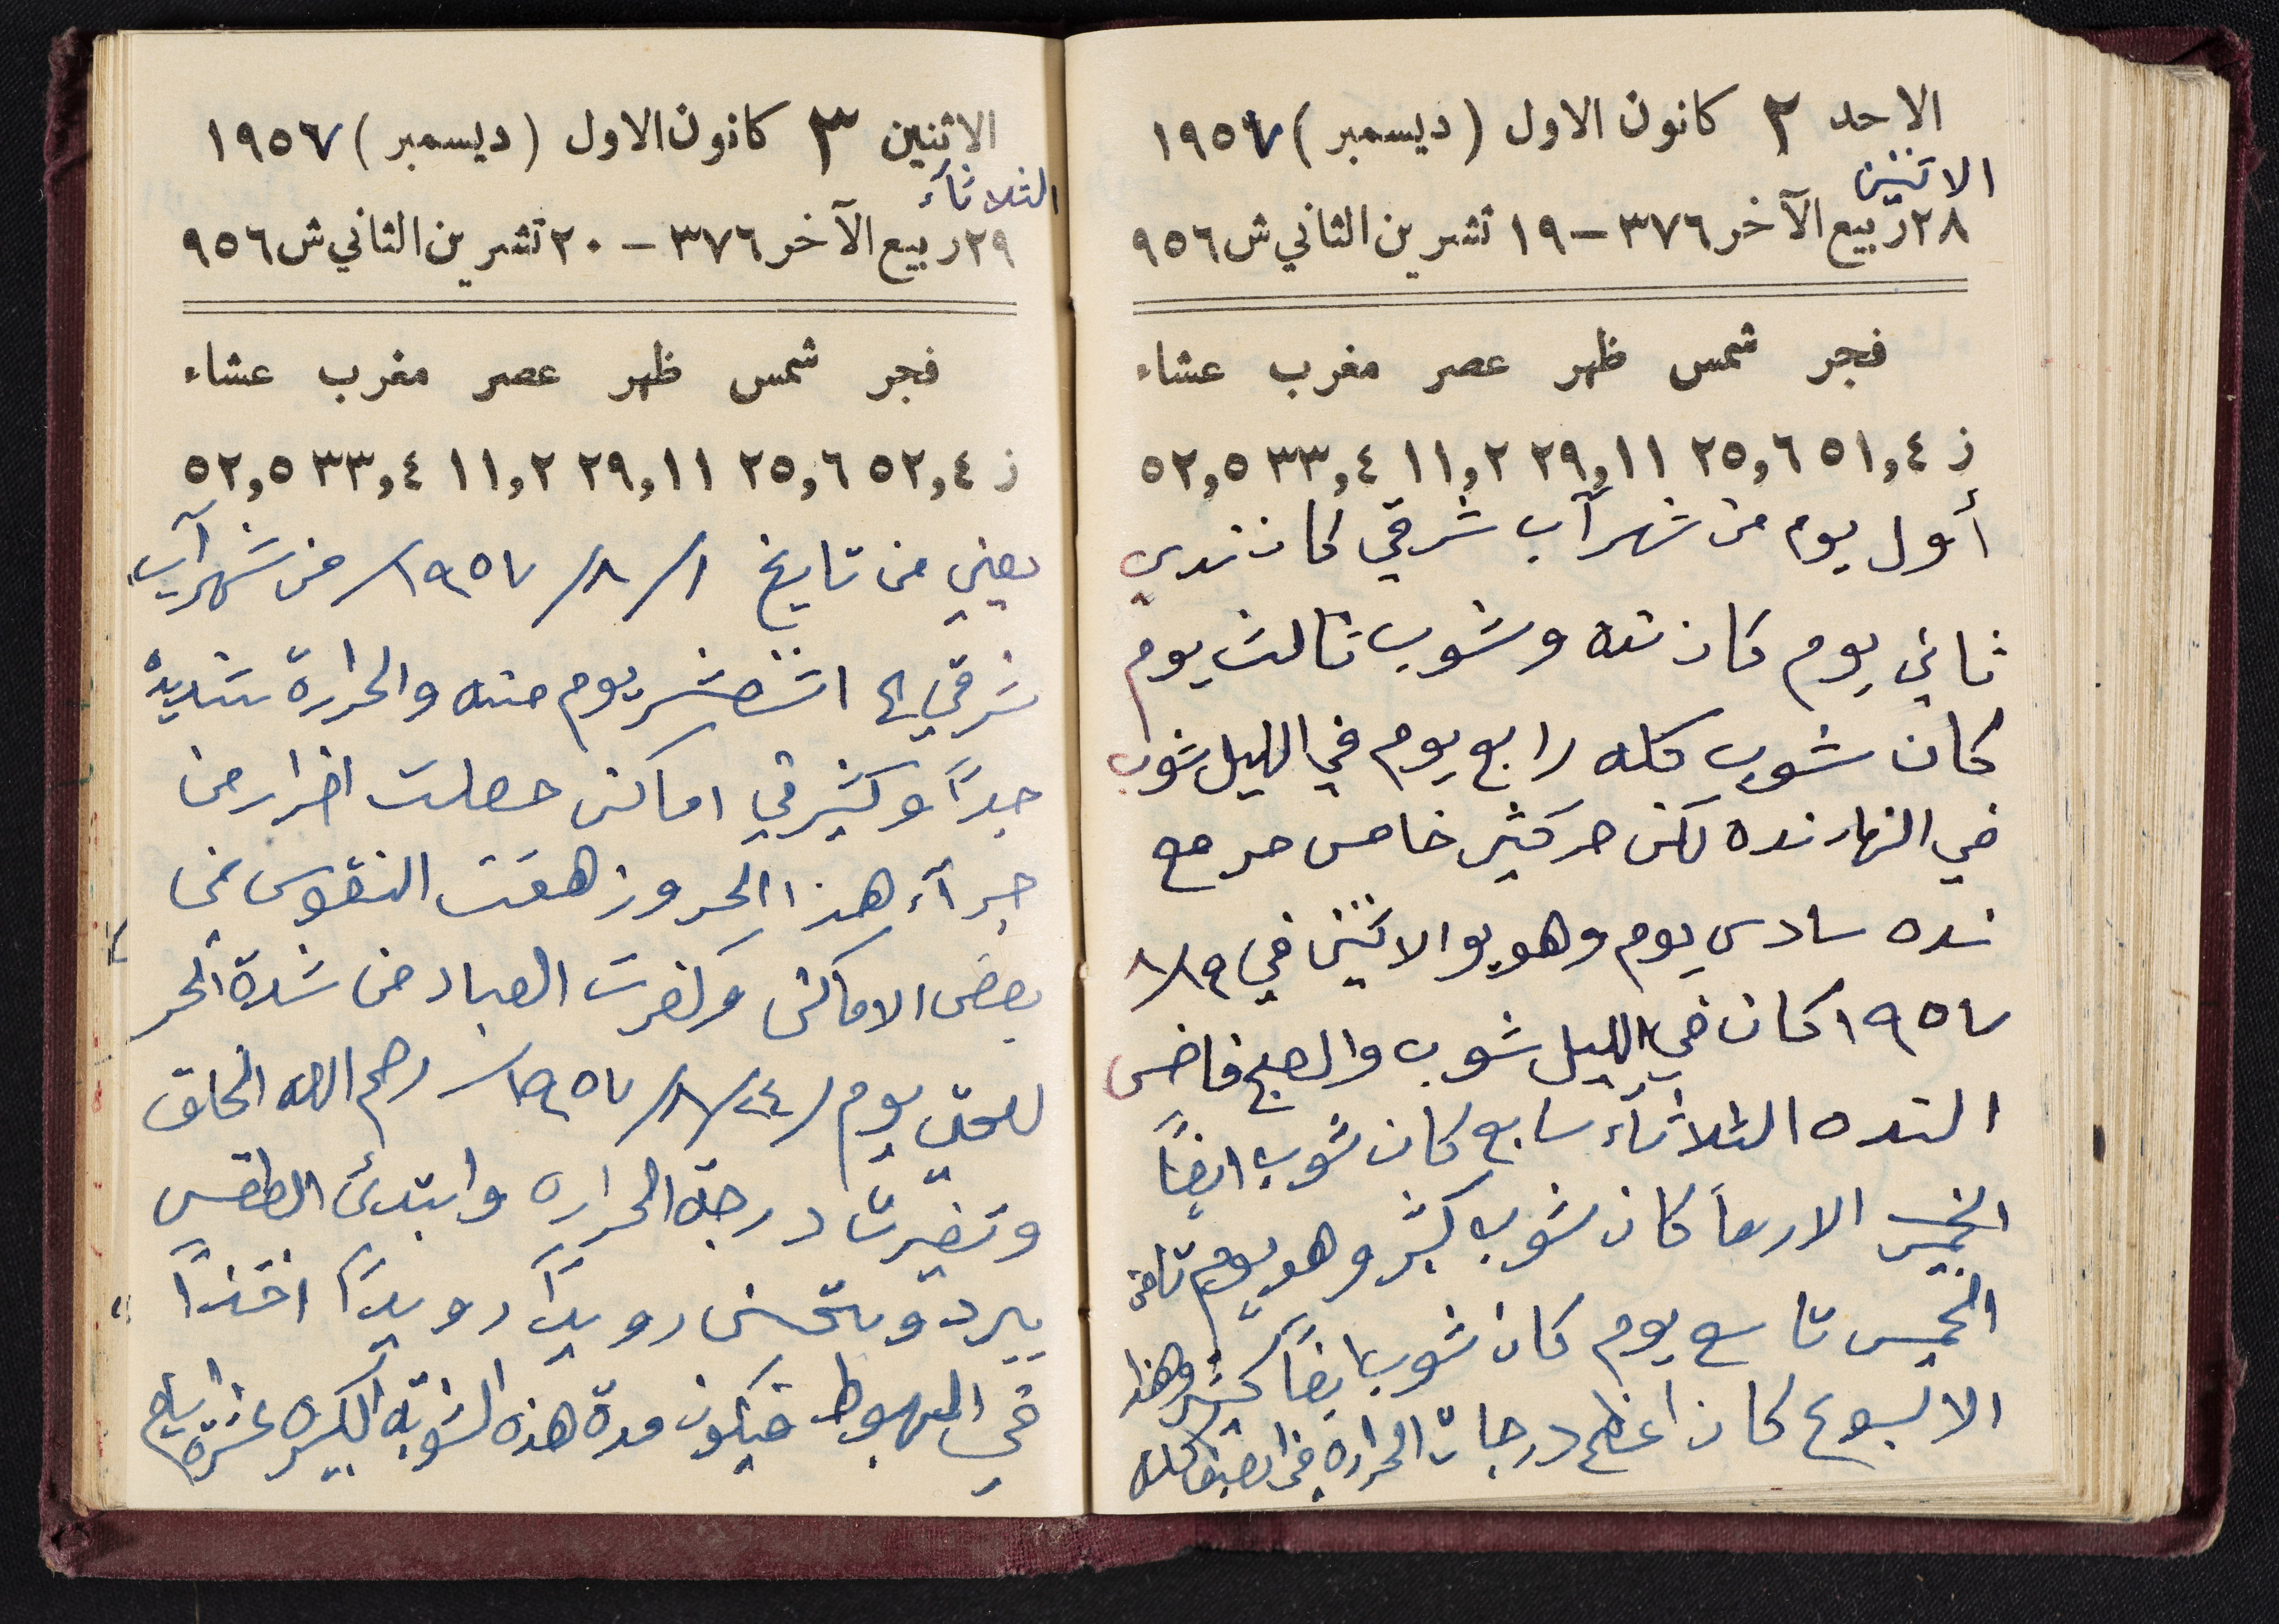 الاحد ٢ كانون الاول (ديسمبر) ١٩٥٧
الاثنين
٢٨ ربيع الآخر ٣٧٦ – ١٩ تشرين الثاني ش ٩٥٦
فجر شمس ظهر عصر مغرب عشاء
ز ٥١,٤ ٢٥,٦ ٢٩,١١ ١١,٢ ٣٣,٤ ٥٢,٥
أول يوم من شهر آب شرقي كان ندي
ثاني يوم كان نده وشوب ثالث يوم
كان شوب كله رابع يوم في الليل شوب
في النهار نده لكن حر كثير خامس حر مع
نده سادس يوم وهو يو الاثنين في ١٩/٨
١٩٥٧ كان في الليل شوب والصبح فاضى
النده الثلاثاء سابع كان شوب ايضاً
الخميس الاربعا كان شوب كثير وهو يوم ثامن
الخميس تاسع يوم كان شوب ايضاً كثير وهذا
الاسبوع كان اعظم درجات الحراره في الصيف كله
الاثنين ٣ كانون الاول (ديسمبر) ١٩٥٧
الثلاثاء
٢٩ ربيع الآخر ٣٧٦ – ٢٠ تشرين الثاني ش ٩٥٦
فجر شمس ظهر عصر مغرب عشاء
ز ٥٢,٤ ٢٥,٦ ٢٩,١١ ١١,٢ ٣٣,٤ ٥٢,٥
يعني من تايخ ١/٨/١٩٥٧/ من شهر آب
شرقي الى اثنعشر يوم منه والحرارة شديدة
جداً وكثير في اماكن حصلت اضرار من
جرآء هذا الحر وزهقت النفوس في
بعض الاماكن وكفرت العباد من شدة الحر
لحتى يوم /٢٤/٨/١٩٥٧/ رحم الله الخلق
وتغيرت درجة الحراره وابتدئ الطقس
يبرد ويتحسن رويداً رويداً اخذاً
في الهبوط فيكون مدة هذه الشوبة الكبيره عشرة ايام